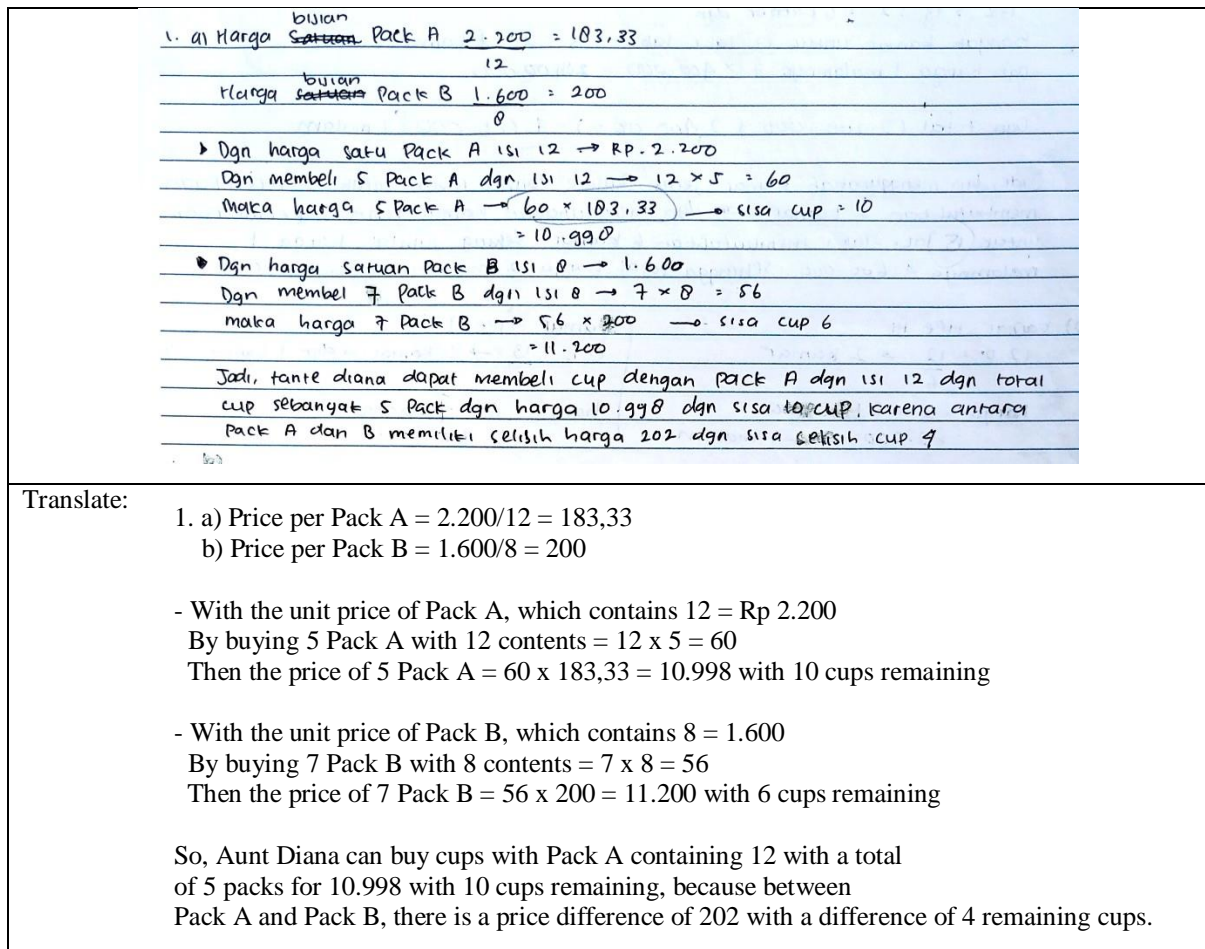 bijian
1. a) Harga Satuan Pack A 2.200 = 183,33
12
bijian
Harga satuan Pack B 1.600 = 200
8
Dgn harga satu Pack A isi 12 → RP. 2.200
Dgn membeli 5 Pack A dgn isi 12 → 12 × 5 = 60
Maka harga 5 Pack A → 60 × 183,33 → sisa cup = 10
= 10.998
• Dgn harga satuan Pack B isi 8 → 1.600
Dgn membel 7 Pack B dgn isi 8 → 7 × 8 = 56
maka harga 7 Pack B → 56 × 200 → sisa cup 6
= 11.200
Jadi, tante diana dapat membeli cup dengan pack A dgn isi 12 dgn total
cup sebanyak 5 Pack dgn harga 10.998 dgn sisa 10 cup, karena antara
Pack A dan B memiliki selisih harga 202 dgn sisa selisih cup 4
Translate:
1. a) Price per Pack A = 2.200/12 = 183,33
b) Price per Pack B = 1.600/8 = 200
- With the unit price of Pack A, which contains 12 = Rp 2.200
By buying 5 Pack A with 12 contents = 12 x 5 = 60
Then the price of 5 Pack A = 60 x 183,33 = 10.998 with 10 cups remaining
- With the unit price of Pack B, which contains 8 = 1.600
By buying 7 Pack B with 8 contents = 7 x 8 = 56
Then the price of 7 Pack B = 56 x 200 = 11.200 with 6 cups remaining
So, Aunt Diana can buy cups with Pack A containing 12 with a total
of 5 packs for 10.998 with 10 cups remaining, because between
Pack A and Pack B, there is a price difference of 202 with a difference of 4 remaining cups.